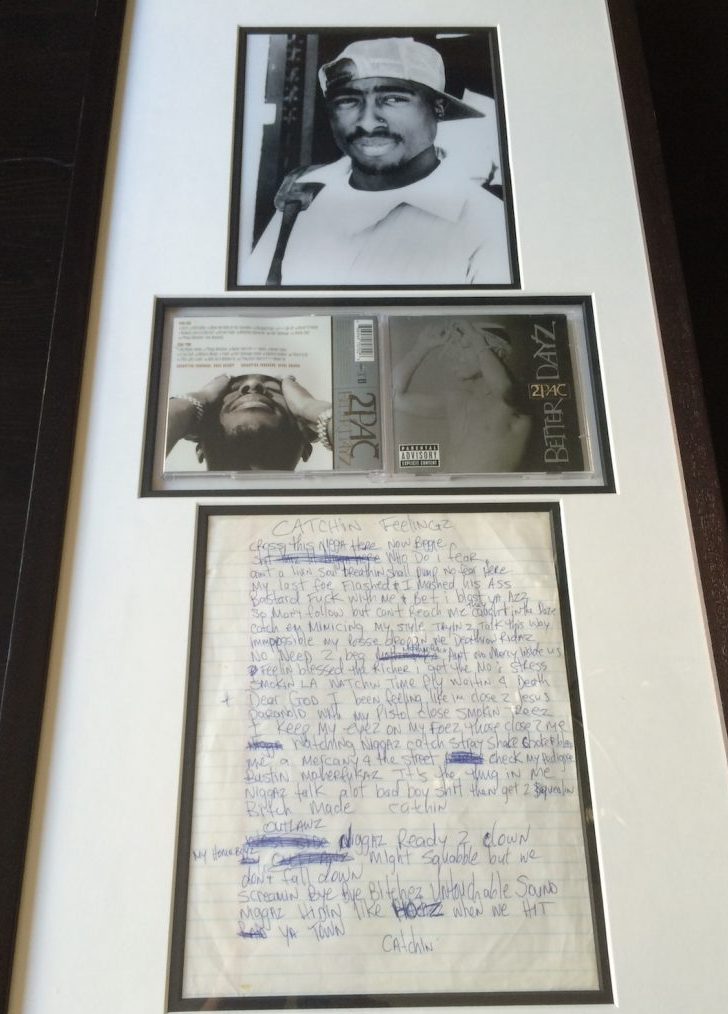 2PAC
2PAC
BETTER DAYZ
PARENTAL
ADVISORY
EXPLICIT CONTENT
CATCHIN FEELINGZ
this NIGGA Here NOW Biggie
Who Do i fear
aint a livin soul breathin shall pump No fear Here
My last foe Flashed & I Mashed his ASS
Bastard Fuck with Me & Bet i blast yo AZZ
So Many follow but cant Reach me caught in tha Daze
catch em Mimicing My style Tryin 2 Talk this way
immpossible my Posse droppin
NO Need 2 beg Aint no Mercy inside us
Feelin blessed tha Richer i get the No's Stress
SMOKIN LA WATCHIN Time fly waitin 4 Death
Dear GOD I been feeling like im close 2 Jesus
Paranoid with my Pistol close SMOKIN Treez
I Keep My eyez on My FOEZ those close 2 me
Watching Niggaz catch stray
me, a Mercany 4 the street check My
Bustin Motherfukaz It's the thug in Me
Niggaz talk alot bad boy shit then get 2
Bitch Made catchin
OUTLAWZ
Niggaz Ready 2 clown
My Homeboyz might squabble but we
dont fall down
Screamin Bye Bye Bitchez Untouchable Sound
Niggaz Hidin like HOEZ when we HIT
YA TOWN
CAtchin